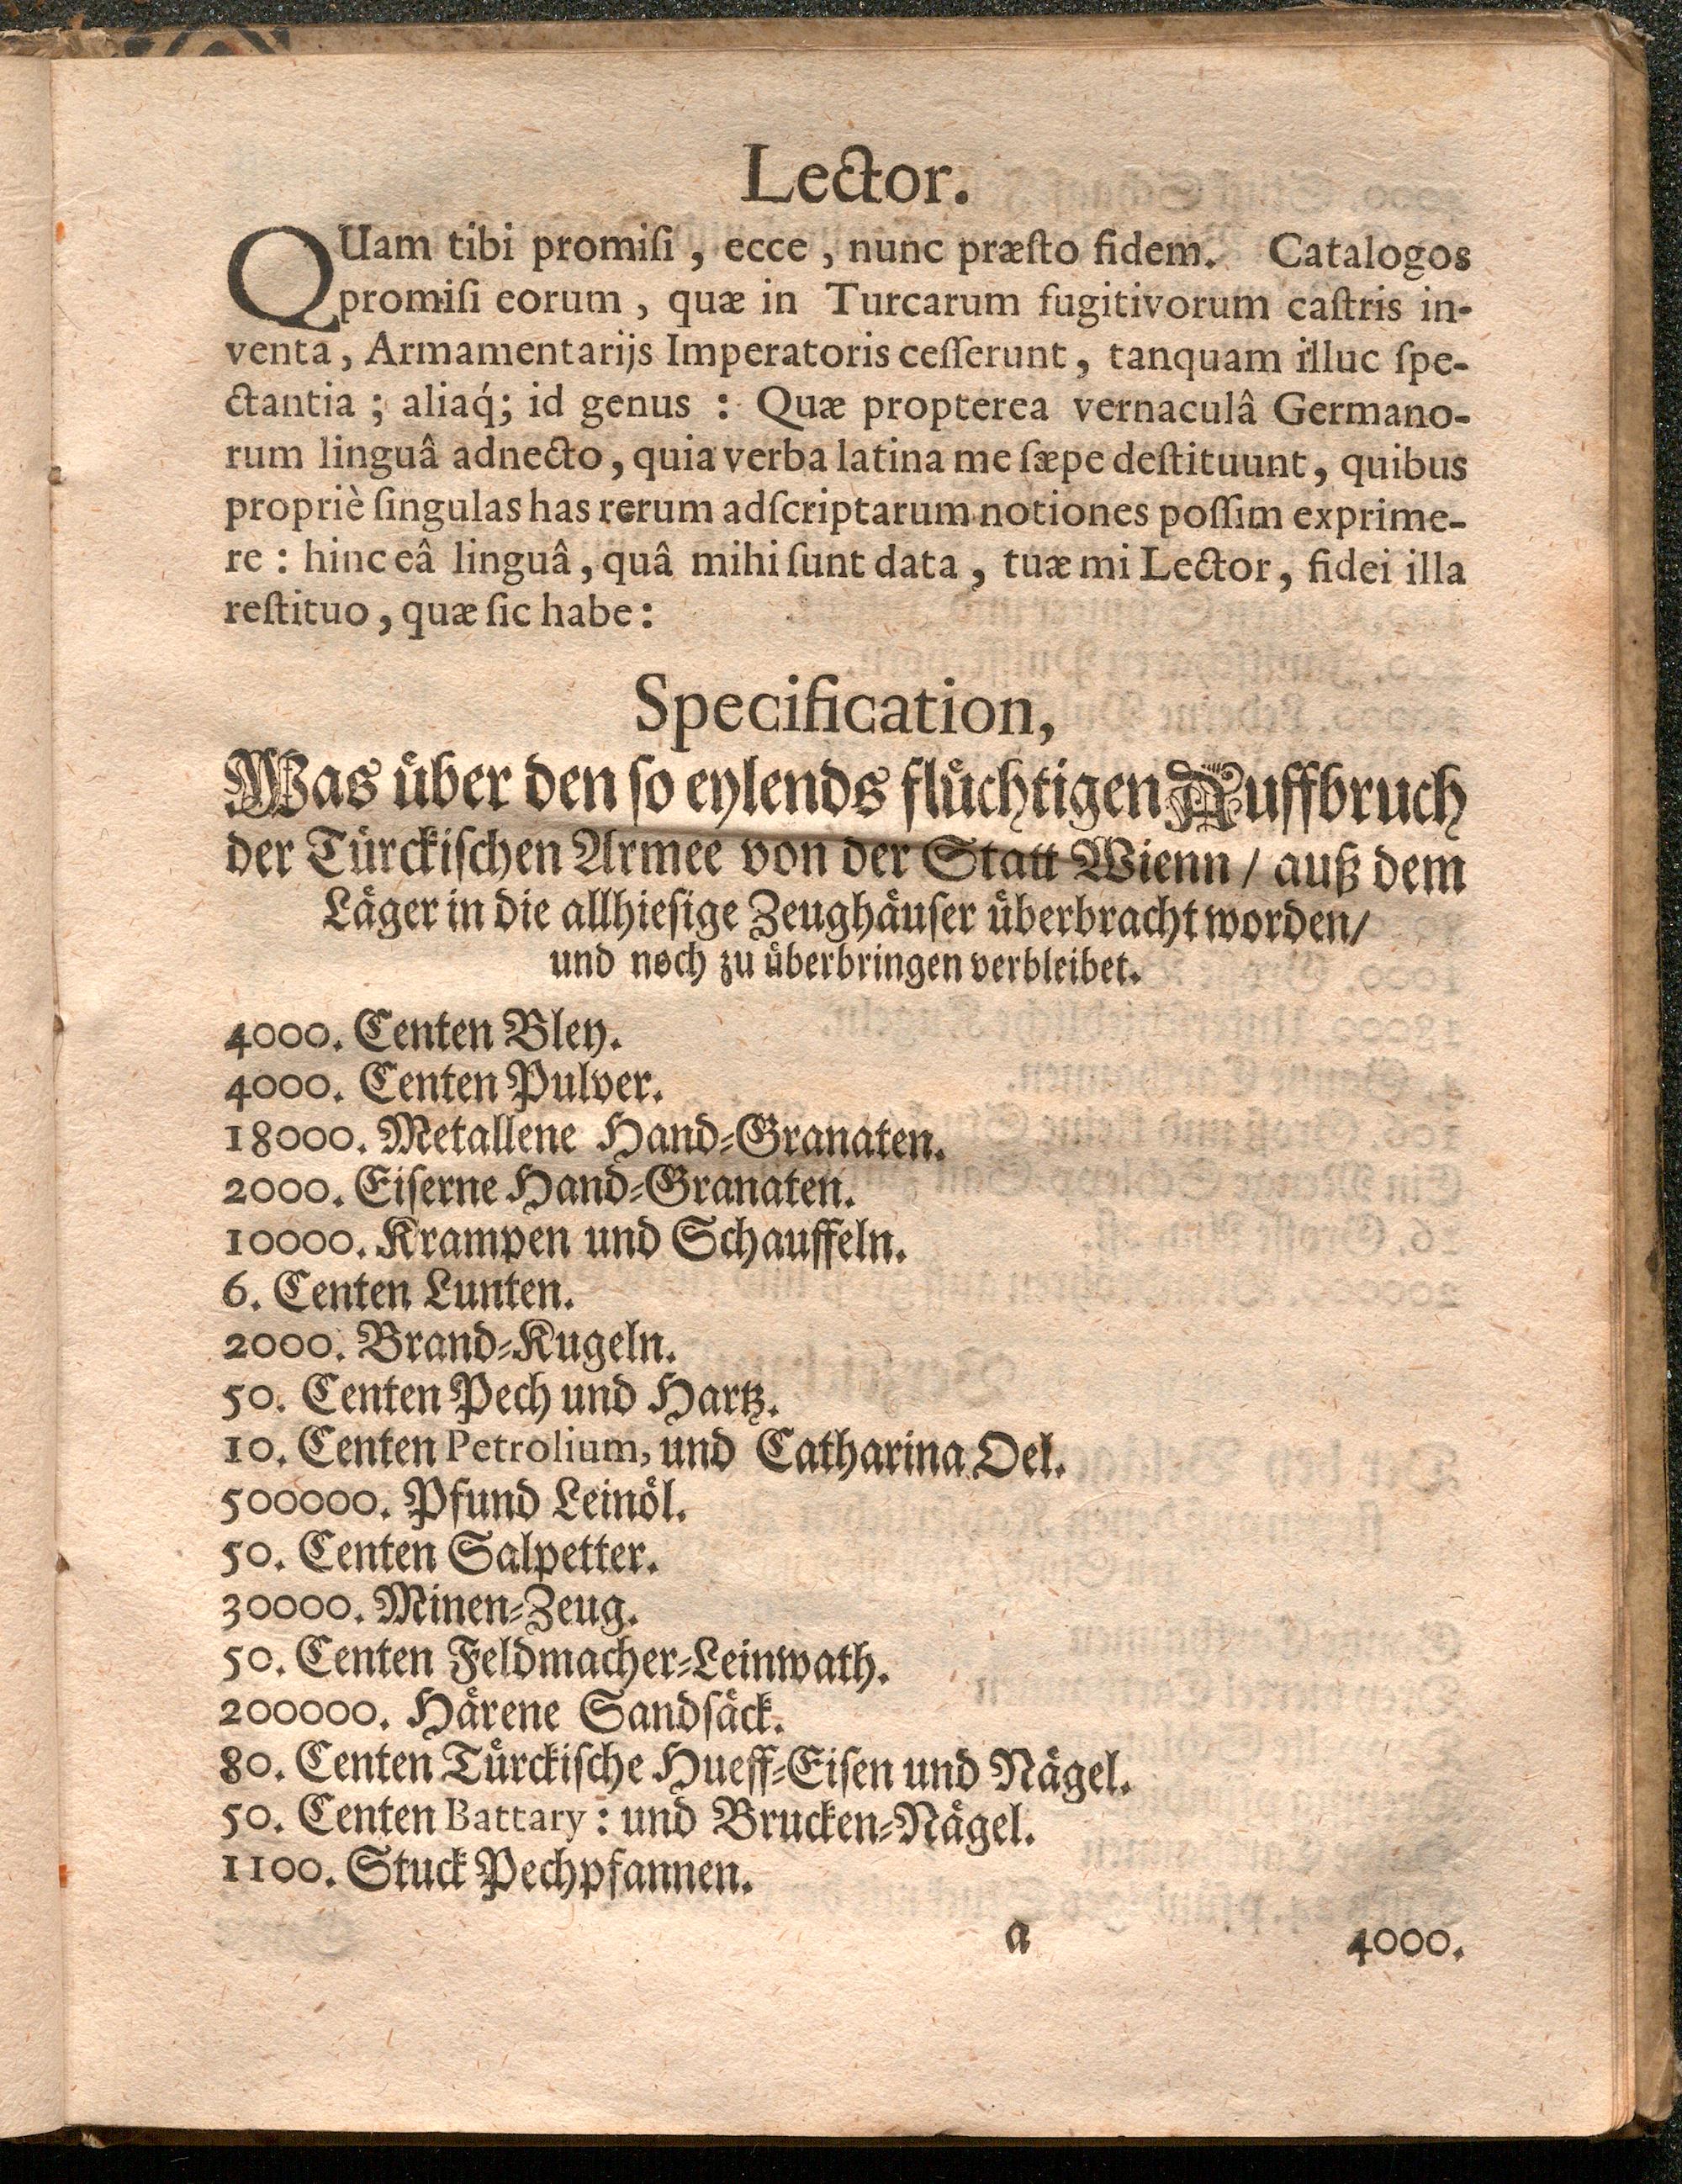 Lector.
QUam tibi promiſi, ecce, nunc præſto fidem. Catalogos
promiſi eorum, quæ in Turcarum fugitivorum caſtris in-
venta, Armamentarijs Imperatoris ceſſerunt, tanquam illuc ſpe-
ctantia; aliaq́; id genus: Quæ propterea vernaculâ Germano-
rum linguâ adnecto, quia verba latina me ſæpe deſtituunt, quibus
propriè ſingulas has rerum adſcriptarum notiones poſſim exprime-
re: hinc eâ linguâ, quâ mihi ſunt data, tuæ mi Lector, fidei illa
reſtituo, quæ ſic habe:
Specification,
Was uͤber den ſo eylends fluͤchtigen Auffbruch
der Tuͤrckiſchen Armee von der Statt Wienn / auß dem
Laͤger in die allhieſige Zeughaͤuſer uͤberbracht worden/
und noch zu uͤberbringen verbleibet.
4000. Centen Bley.
4000. Centen Pulver.
18000. Metallene Hand-Granaten.
2000. Eiſerne Hand-Granaten.
10000. Krampen und Schauffeln.
6. Centen Lunten.
2000. Brand-Kugeln.
50. Centen Pech und Hartz.
10. Centen Petrolium, und Catharina Oel.
500000. Pfund Leinoͤl.
50. Centen Salpetter.
30000. Minen-Zeug.
50. Centen Feldmacher-Leinwath.
200000. Haͤrene Sandſaͤck.
80. Centen Tuͤrckiſche Hueff-Eiſen und Naͤgel.
50. Centen Battary: und Brucken-Naͤgel.
1100. Stuck Pechpfannen.
a 4000.